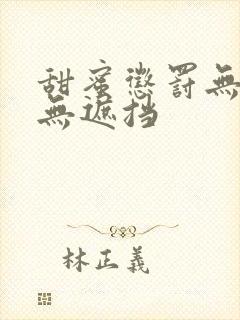 甜蜜懲罰無
無遮挡
林正義